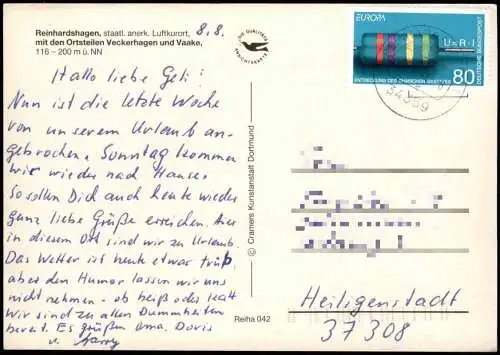 Reinhardshagen, staatl. anerk. Luftkurort,
mit den Ortsteilen Veckerhagen und Vaake,
116 – 200 m ü. NN
8.8.
DIE QUALITÄTS
ANSICHTSKARTE
EUROPA
U=R·I
DEUTSCHE BUNDESPOST
ENTDECKUNG DES OHMSCHEN GESETZES
80
34359
Hallo liebe Geli!
Nun ist die letzte Woche
von unserem Urlaub an-
gebrochen, Sonntag kommen
wir wieder nach Hause.
So sollen Dich auch heute wieder
ganz liebe Grüße erreichen. Hier
in diesem Ort sind wir zu Urlaub.
Das Wetter ist heute etwas trüb,
aber den Humor lassen wir uns
nicht nehmen - ob heiß oder kalt
Wir sind zu allen Dummheiten
bereit. Es grüßen Oma, Doris
u. Harry
© Cramers Kunstanstalt Dortmund
Reiha 042
Heiligenstadt
37308